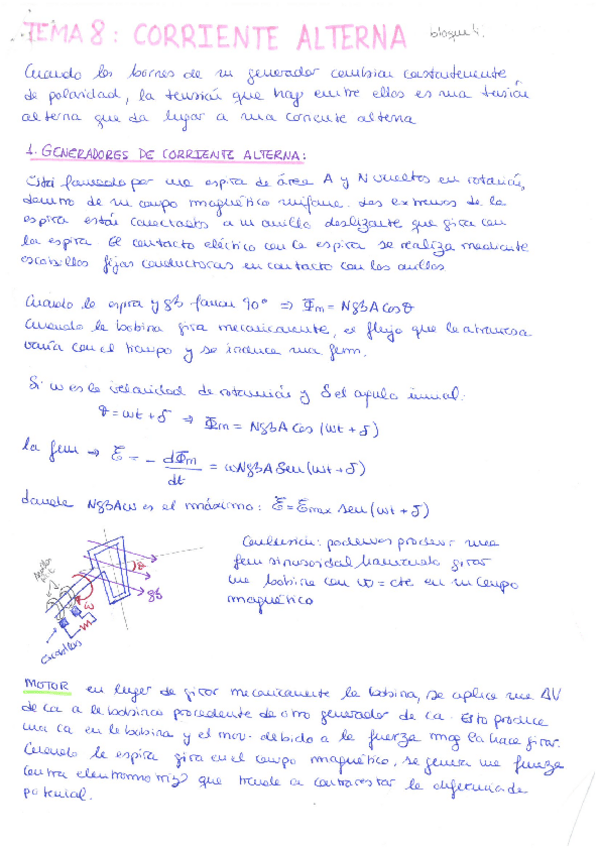 TEMA 8: CORRIENTE ALTERNA bloque 4.
Cuando los bornes de un generador cambian constantemente
de polaridad, la tensión que hay entre ellos es una tensión
alterna que da lugar a una corriente alterna
1. GENERADORES DE CORRIENTE ALTERNA:
Está formado por una espira de área A y N vueltas en rotación,
dentro de un campo magnético uniforme. Los extremos de la
espira están conectados a un anillo deslizante que gira con
la espira El contacto eléctrico con la espira se realiza mediante
escobillas fijas conductoras en contacto con los anillos
Cuando la espira y B forman 90° ⇒ Φm = NBA cos θ
Cuando la bobina gira mecánicamente, el flujo que la atraviesa
varía con el tiempo y se induce una fem.
Si ω es la velocidad de rotación y δ el ángulo inicial:
θ = ωt + δ ⇒ Φm = NBA cos (ωt + δ)
la fem → Ɛ = - dΦm/dt = ωNBA sen (ωt + δ)
donde NBAω es el máximo: Ɛ = Ɛmax sen (ωt + δ)
Conclusión: podemos producir una
fem sinusoidal haciendo girar
una bobina con ω = cte en un campo
magnético
θ
B
ω
MOTOR en lugar de girar mecánicamente la bobina, se aplica una ΔV
de ca a la bobina procedente de otro generador de ca. Esto produce
una ca en la bobina y el mov. debido a la fuerza mag la hace girar.
Cuando la espira gira en el campo magnético, se genera una fuerza
contra electromotriz que tiende a contrarrestar la diferencia de
potencial.